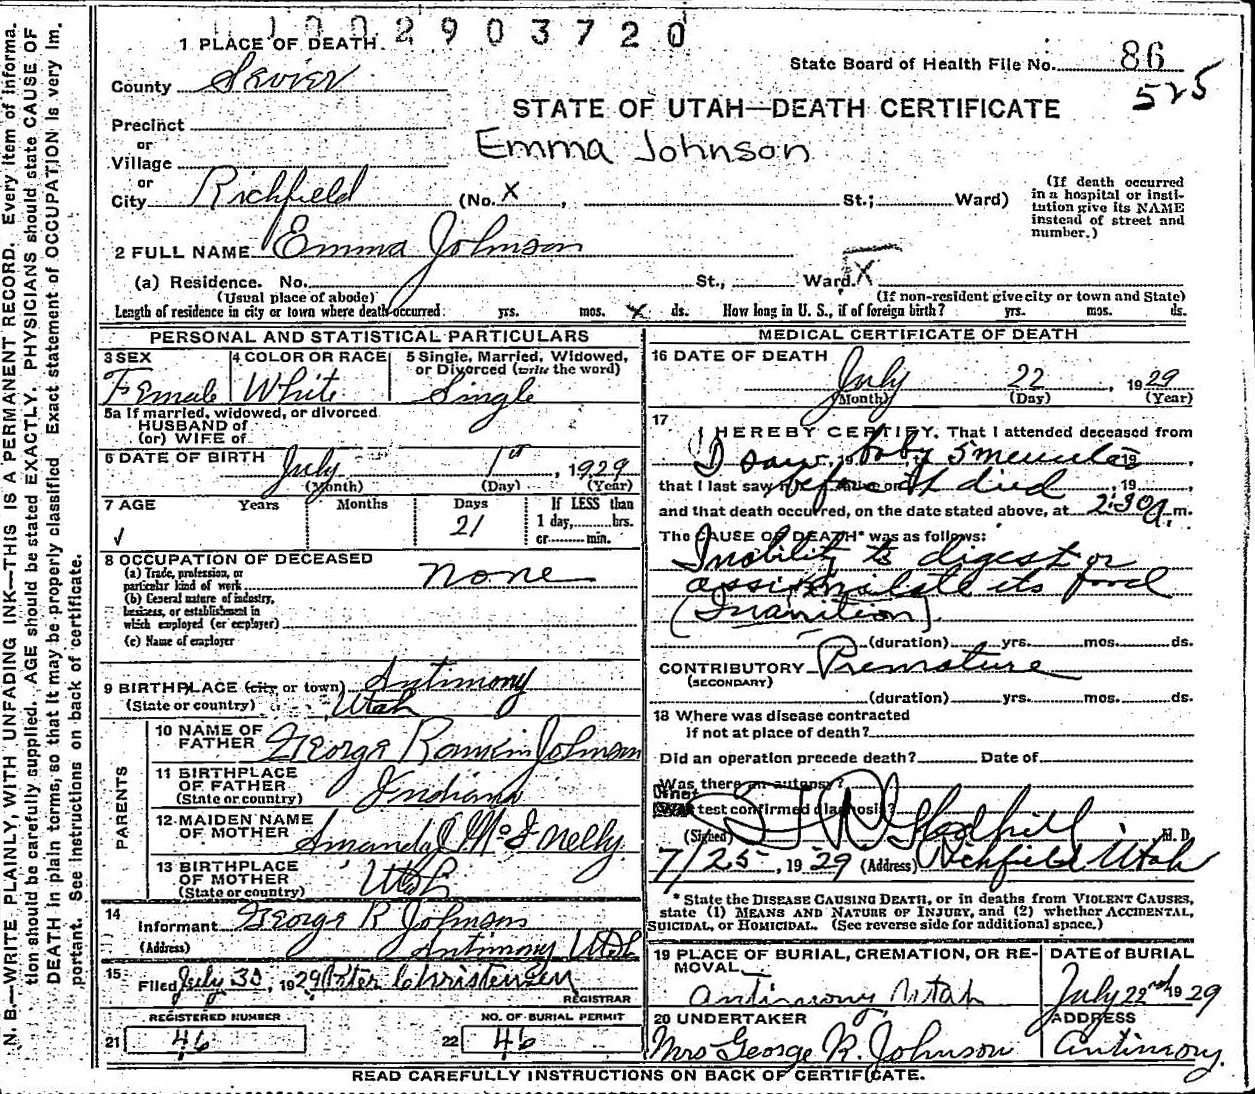 1002903720
1 PLACE OF DEATH.
State Board of Health File No. 86
525
County Sevier
STATE OF UTAH—DEATH CERTIFICATE
Precinct
or
Village
Emma Johnson
or
City Richfield (No. X , St.; Ward)
(If death occurred
in a hospital or insti-
tution give its NAME
instead of street and
number.)
2 FULL NAME Emma Johnson
(a) Residence. No. St., Ward. X
(Usual place of abode) (If non-resident give city or town and State)
Length of residence in city or town where death occurred yrs. mos. X ds. How long in U. S., if of foreign birth? yrs. mos. ds.
PERSONAL AND STATISTICAL PARTICULARS
3 SEX
Female
4 COLOR OR RACE
White
5 Single, Married, Widowed,
or Divorced (write the word)
Single
5a If married, widowed, or divorced
HUSBAND of
(or) WIFE of
6 DATE OF BIRTH July 1st , 1929
(Month) (Day) (Year)
7 AGE Years Months Days If LESS than
21 1 day, hrs.
or min.
8 OCCUPATION OF DECEASED
(a) Trade, profession, or
particular kind of work none
(b) General nature of industry,
business, or establishment in
which employed (or employer)
(c) Name of employer
9 BIRTHPLACE (city or town) Antimony
(State or country) Utah
PARENTS
10 NAME OF
FATHER George Rankin Johnson
11 BIRTHPLACE
OF FATHER
(State or country) Indiana
12 MAIDEN NAME
OF MOTHER Amanda J McInelly
13 BIRTHPLACE
OF MOTHER
(State or country) Utah
14
Informant George R Johnson
(Address) Antimony Utah
15
Filed July 30, 1929 Christensen
REGISTRAR
REGISTERED NUMBER NO. OF BURIAL PERMIT
21 46 22 46
MEDICAL CERTIFICATE OF DEATH
16 DATE OF DEATH
July 22 , 1929
(Month) (Day) (Year)
17
I HEREBY CERTIFY, That I attended deceased from
I saw baby 5 minutes 19
that I last saw h alive on , 19
before it died
and that death occurred, on the date stated above, at 2:30 a. m.
The CAUSE OF DEATH* was as follows:
Inability to digest or
assimilate its food
(Inanition)
(duration) yrs. mos. ds.
CONTRIBUTORY Premature
(SECONDARY)
(duration) yrs. mos. ds.
18 Where was disease contracted
if not at place of death?
Did an operation precede death? Date of
Was there an autopsy?
What test confirmed diagnosis?
(Signed) Gledhill M. D.
7/25, 1929 (Address) Richfield Utah
* State the DISEASE CAUSING DEATH, or in deaths from VIOLENT CAUSES,
state (1) MEANS AND NATURE OF INJURY, and (2) whether ACCIDENTAL,
SUICIDAL, or HOMICIDAL. (See reverse side for additional space.)
19 PLACE OF BURIAL, CREMATION, OR RE-
MOVAL
Antimony Utah
DATE of BURIAL
July 22nd 1929
20 UNDERTAKER
Mrs George R. Johnson
ADDRESS
Antimony.
READ CAREFULLY INSTRUCTIONS ON BACK OF CERTIFICATE.
N. B.—WRITE PLAINLY, WITH UNFADING INK—THIS IS A PERMANENT RECORD. Every item of informa-
tion should be carefully supplied. AGE should be stated EXACTLY. PHYSICIANS should state CAUSE OF
DEATH in plain terms, so that it may be properly classified. Exact statement of OCCUPATION is very im-
portant. See instructions on back of certificate.